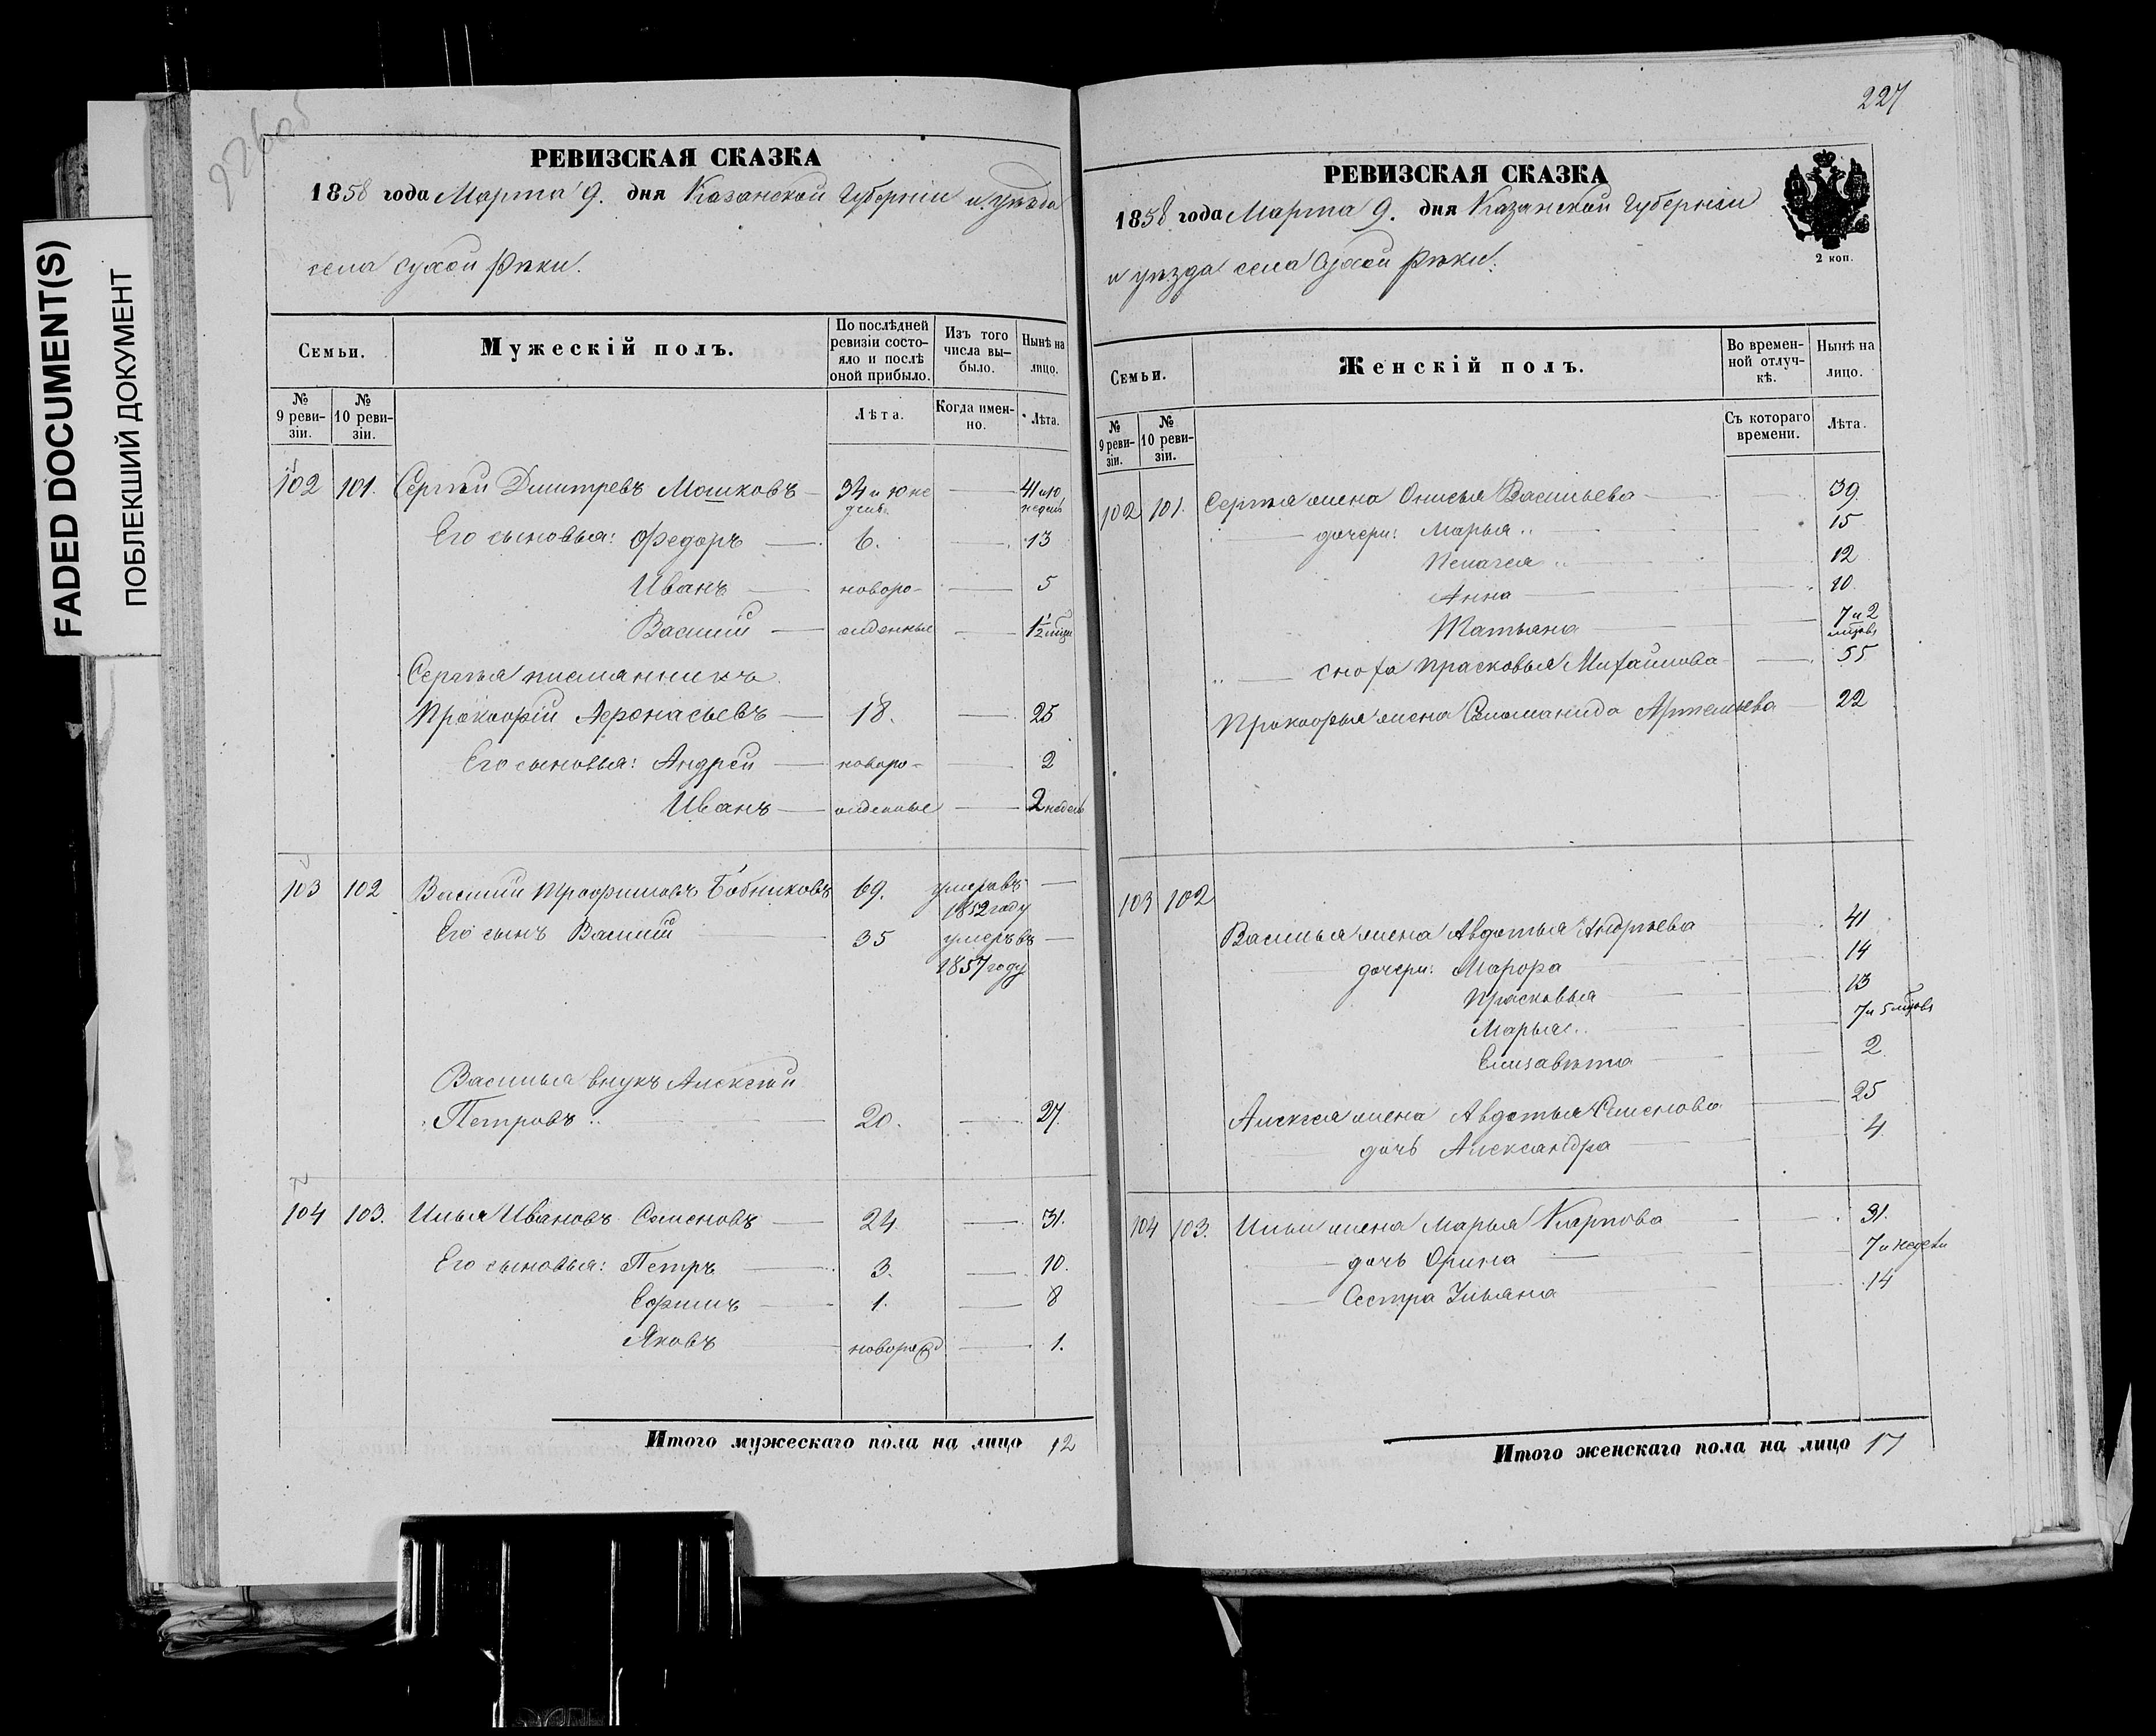 FADED DOCUMENT(S)
ПОБЛЕКШИЙ ДОКУМЕНТ
226об
РЕВИЗСКАЯ СКАЗКА
1858 года Марта 9. дня Казанской Губерніи и уѣзда
села Сухой Рѣки.
Семьи.
Мужескій полъ.
По послѣдней ревизіи состояло и послѣ оной прибыло.
Изъ того числа вы-было.
Нынѣ на лицо.
№ 9 реви-зіи.
№ 10 реви-зіи.
Лѣта.
Когда имен-но.
Лѣта.
102 101. Сергѣй Дмитревъ Мошковъ — 34 и 10 не дель — 41 и 10 недель
Его сыновья: Федоръ — 6. — 13
Иванъ — новоро- — 5
Василій — жденные — 1/2 мца
Сергѣя племянникъ
Прокофій Афонасьевъ — 18. — 25
Его сыновья: Андрей — новоро- — 2
Иванъ — жденные — 2 недель
103 102 Василій Трофимовъ Бобниковъ 69. умеръ въ 1852 году —
Его сынъ Василій — 35 умеръ въ 1857 году —
Василья внукъ Алексѣй
Петровъ .. — 20. — 27.
104 103. Илья Ивановъ Семеновъ — 24. — 31.
Его сыновья: Петръ — 3. — 10.
Ефимъ — 1. — 8
Яковъ — новорожд — 1.
Итого мужескаго пола на лицо 12
227
РЕВИЗСКАЯ СКАЗКА
1858 года Марта 9. дня Казанской Губерніи
и уѣзда села Сухой Рѣки.
2 коп.
Семьи.
Женскій полъ.
Во времен-ной отлуч-кѣ.
Нынѣ на лицо.
№ 9 реви-зіи.
№ 10 реви-зіи.
Съ котораго времени.
Лѣта.
102 101. Сергѣя жена Онисья Васильева — 39.
дочери: Марья .. — 15
Пелагея .. — 12
Анна — 10.
Татьяна — 7 и 2 мцовъ
.. — сноха Прасковья Михайлова — 55
Прокофья жена Соломанида Артемьева — 22
103 102
Василья жена Авдотья Андреева — 41
дочери: Мавра — 14
Прасковья — 13
Марья .. — 7 и 5 мцовъ
Елизавѣта — 2.
Алексея жена Авдотья Семенова — 25
дочь Александра — 4.
104 103. Ильи жена Марья Карпова — 31.
дочь Орина — 7 и недели
Сестра Ульяна — 14
Итого женскаго пола на лицо 17